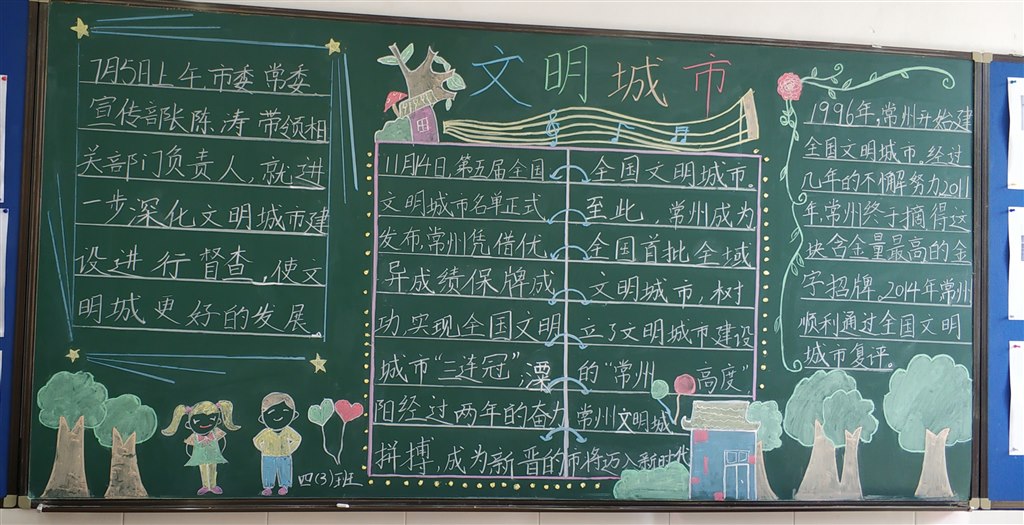 文明城市
7月5日上午,市委常委
宣传部张陈涛带领相
关部门负责人,就进
一步深化文明城市建
设进行督查,使文
明城更好的发展。
11月14日,第五届全国
文明城市名单正式
发布,常州凭借优
异成绩保牌成
功,实现全国文明
城市“三连冠”,溧
阳经过两年的奋力
拼搏,成为新晋的
全国文明城市。
至此,常州成为
全国首批全域
文明城市,树
立了文明城市建设
的“常州高度”
常州文明城
市将迈入新时代
1996年,常州开始建
全国文明城市。经过
几年的不懈努力2011
年,常州终于摘得这
块含金量最高的金
字招牌。2014年常州
顺利通过全国文明
城市复评。
四(3)班